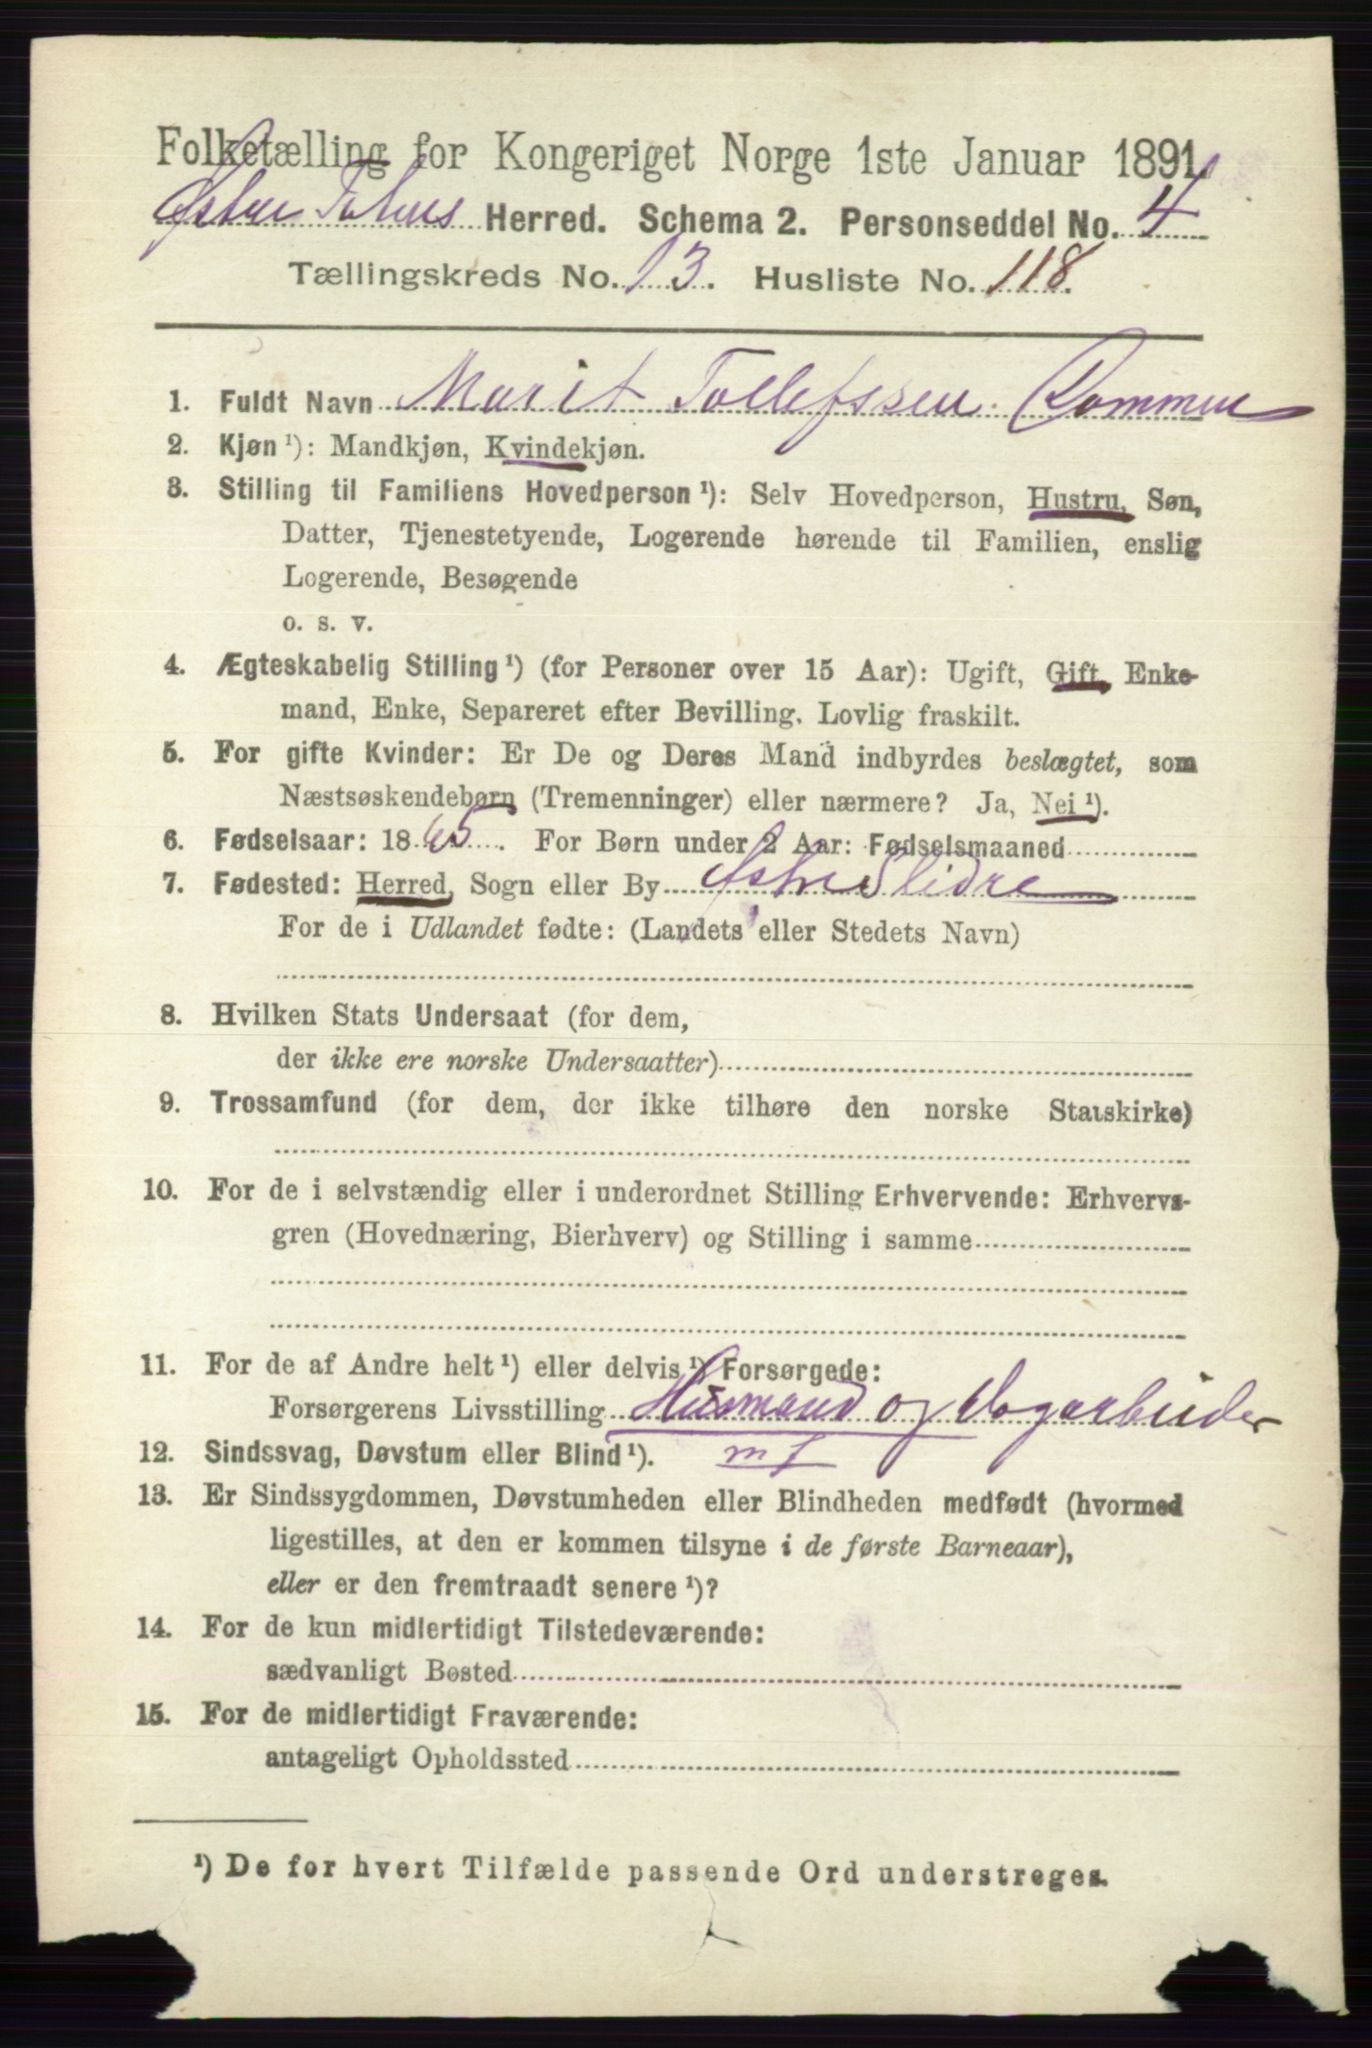 Folketælling for Kongeriget Norge 1ste Januar 1891.
Østre Totens Herred. Schema 2. Personseddel No. 4
Tællingskreds No. 13. Husliste No. 118.
1. Fuldt Navn Marit Tollefssen Rommen
2. Kjøn ¹): Mandkjøn, Kvindekjøn.
3. Stilling til Familiens Hovedperson ¹): Selv Hovedperson, Hustru, Søn,
Datter, Tjenestetyende, Logerende hørende til Familien, enslig
Logerende, Besøgende
o. s. v.
4. Ægteskabelig Stilling ¹) (for Personer over 15 Aar): Ugift, Gift, Enke-
mand, Enke, Separeret efter Bevilling. Lovlig fraskilt.
5. For gifte Kvinder: Er De og Deres Mand indbyrdes beslægtet, som
Næstsøskendebørn (Tremenninger) eller nærmere? Ja, Nei ¹).
6. Fødselsaar: 1865. For Børn under 2 Aar: Fødselsmaaned
7. Fødested: Herred, Sogn eller By Østre Slidre
For de i Udlandet fødte: (Landets eller Stedets Navn)
8. Hvilken Stats Undersaat (for dem,
der ikke ere norske Undersaatter)
9. Trossamfund (for dem, der ikke tilhøre den norske Statskirke)
10. For de i selvstændig eller i underordnet Stilling Erhvervende: Erhvervs-
gren (Hovednæring, Bierhverv) og Stilling i samme
11. For de af Andre helt ¹) eller delvis ¹) Forsørgede:
Forsørgerens Livsstilling Husmand og Dagarbeider
12. Sindssvag, Døvstum eller Blind ¹). mf
13. Er Sindssygdommen, Døvstumheden eller Blindheden medfødt (hvormed
ligestilles, at den er kommen tilsyne i de første Barneaar),
eller er den fremtraadt senere ¹)?
14. For de kun midlertidigt Tilstedeværende:
sædvanligt Bosted
15. For de midlertidigt Fraværende:
antageligt Opholdssted
¹) De for hvert Tilfælde passende Ord understreges.